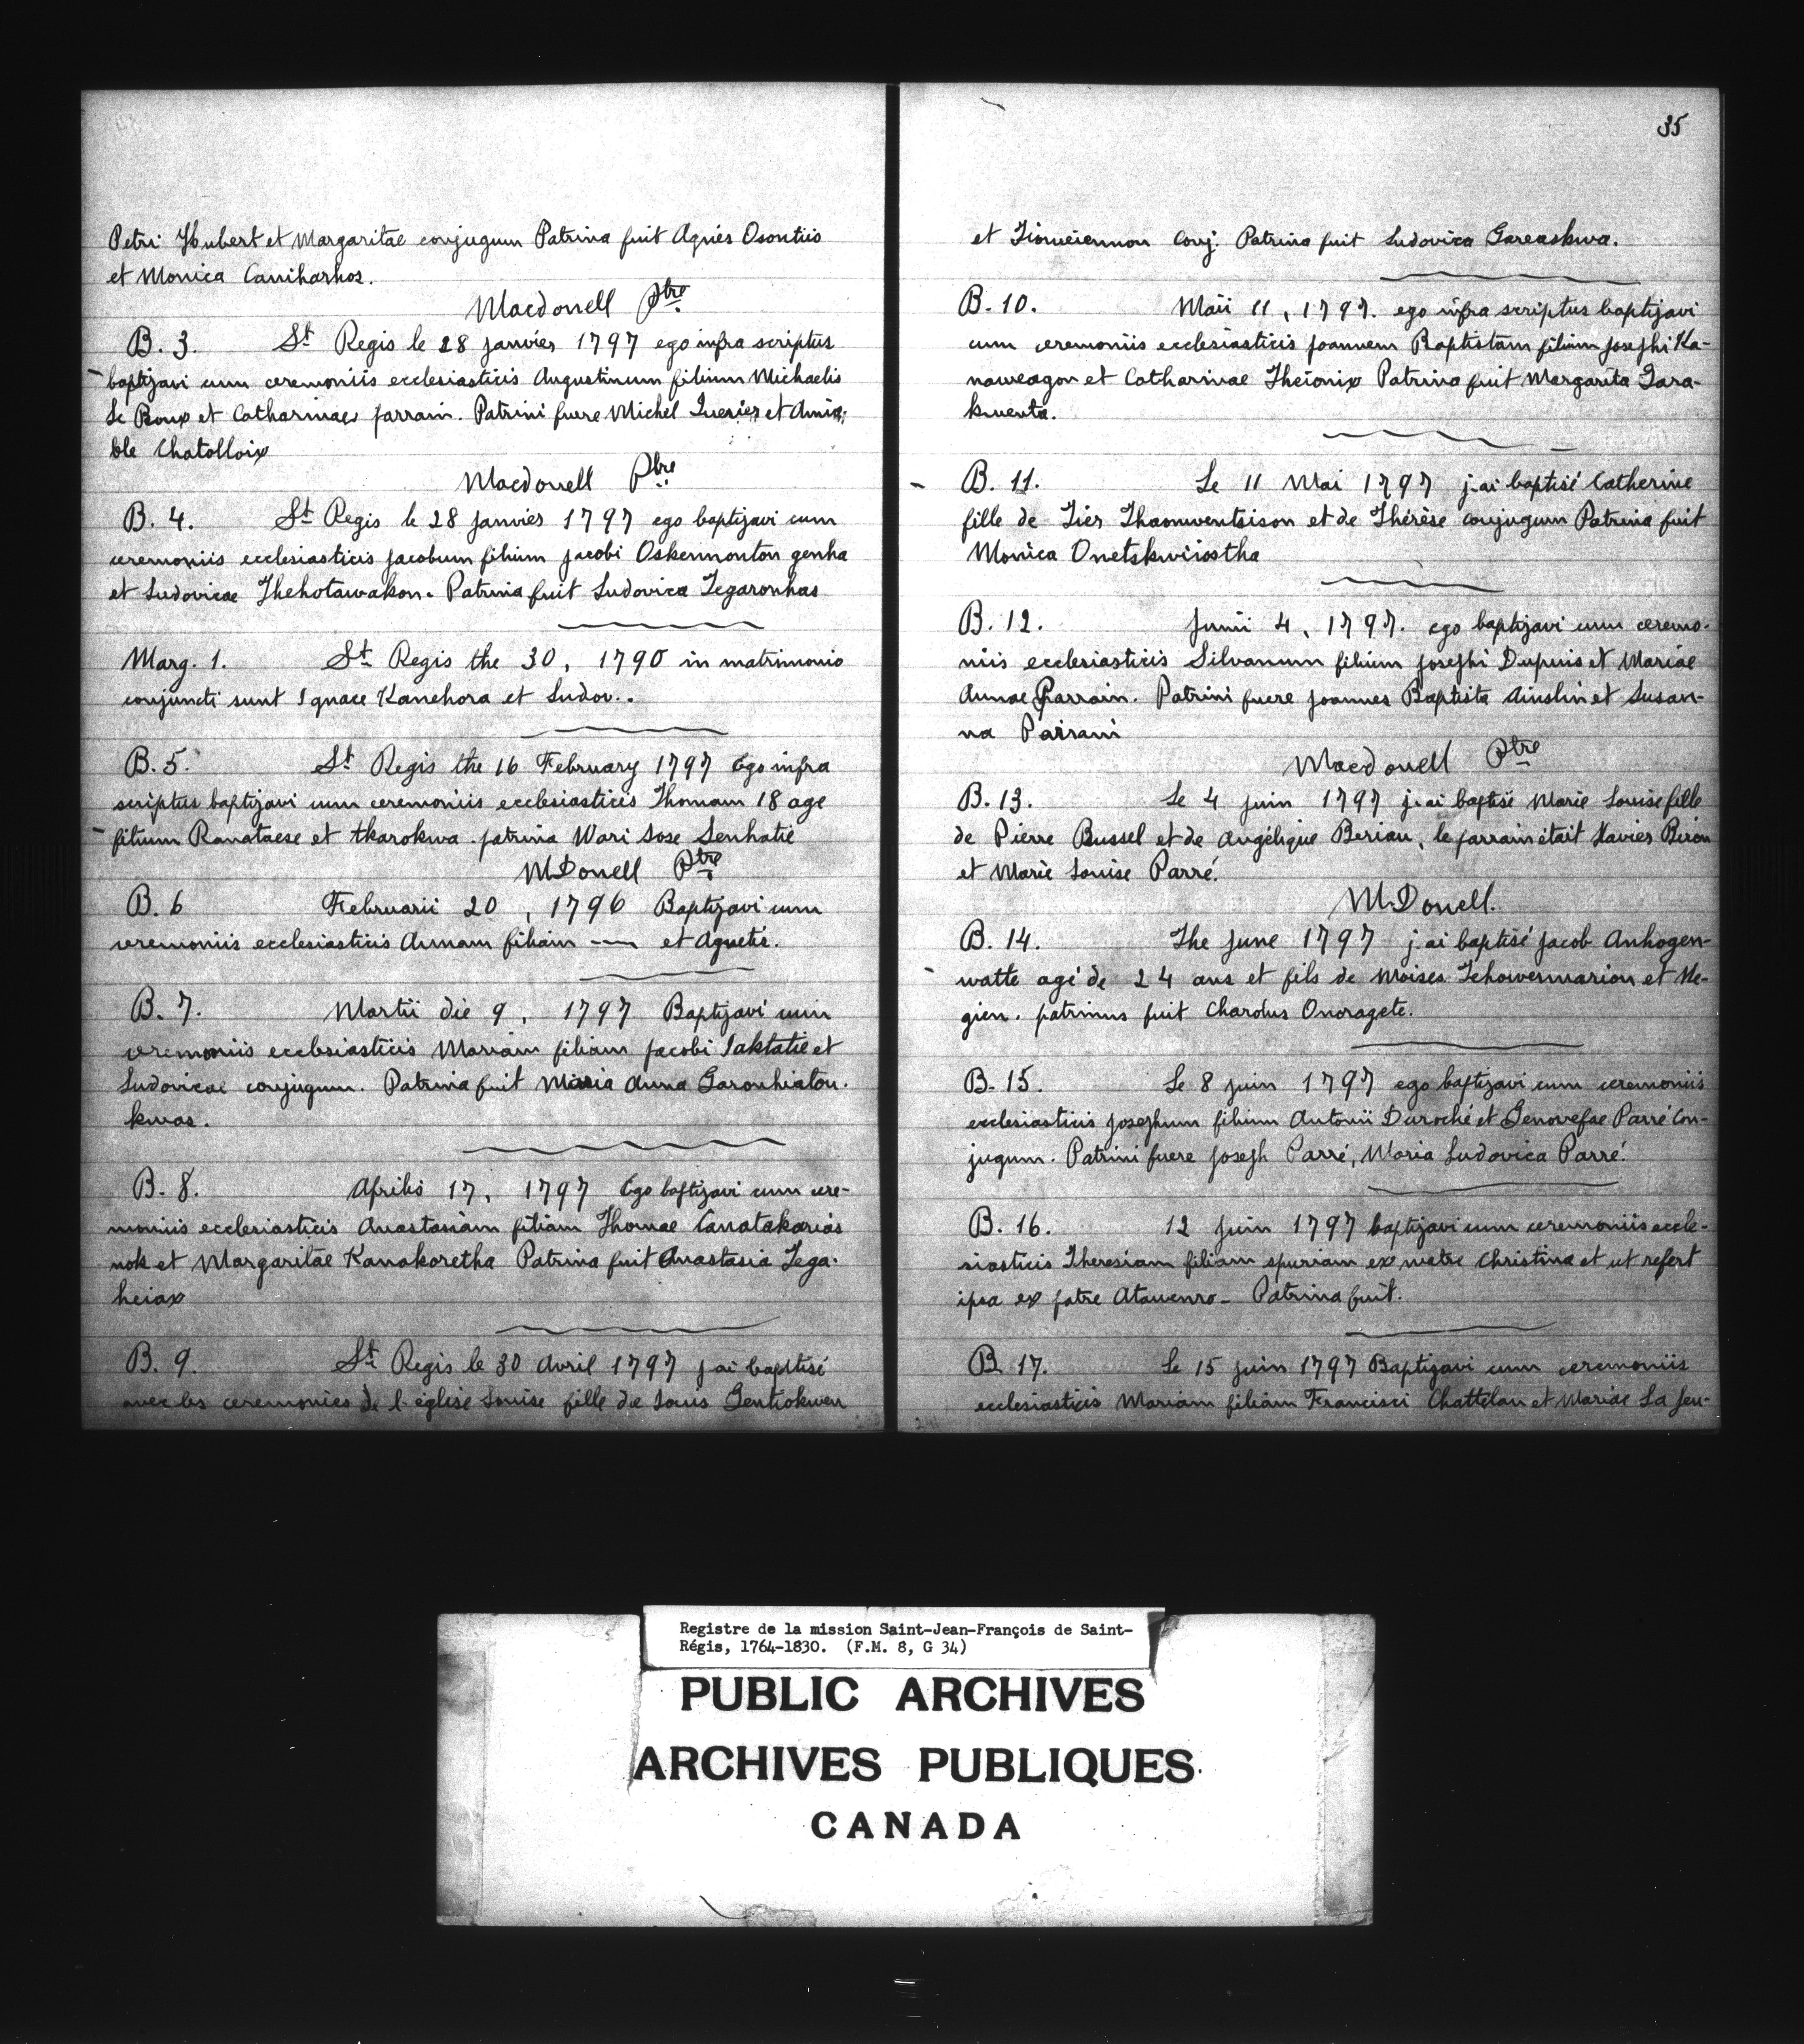 Petri Hubert et Margaritae conjugum Patrina fuit Agnés Osontiio
et Monica Caniharhos.
Macdonell Ptre
B. 3. St Regis le 28 janvier 1797 ego infra scriptus
baptizavi cum ceremoniis ecclesiasticis Augustinum filium Michaelis
Le Boux et Catharinae parrain. Patrini fuere Michel Querier et Amia-
ble Chatolloix
Macdonell Pbre
B. 4. St Regis le 28 janvier 1797 ego baptizavi cum
ceremoniis ecclesiasticis jacobum filium jacobi Oskennonton genha
et Ludovicae Thehotawakon. Patrina fuit Ludovica Tegaronhas
Marg. 1. St Regis the 30, 1790 in matrimonio
conjuncti sunt Ignace Kanehora et Ludov..
B. 5. St Regis the 16 February 1797 Ego infra
scriptus baptizavi cum ceremoniis ecclesiasticis Thomam 18 age
filium Ranataese et tkarokwa. patrina Wari Sose Senhatie
McDonell Ptre
B. 6 Februarii 20, 1796 Baptizavi cum
ceremoniis ecclesiasticis Annam filiam —— et Agnetis.
B. 7. Martii die 9, 1797 Baptizavi cum
ceremoniis ecclesiasticis Mariam filiam jacobi Saktatie et
Ludovicae conjugum. Patrina fuit Maria Anna Garonhiaton-
kwas.
B. 8. Aprilis 17, 1797 Ego baptizavi cum cere-
moniis ecclesiasticis Anastasiam filiam Thomae Canatakarias
nok et Margaritae Kanakoretha Patrina fuit Anastasia Tega-
heiax
B. 9. St Regis le 30 Avril 1797 j'ai baptisé
avec les ceremonies de l'église Louise fille de Louis Gentiokwen
35
et Tionneiennon Conj. Patrina fuit Ludovica Gareaskwa.
B. 10. Maii 11, 1797. ego infra scriptus baptizavi
cum ceremoniis ecclesiasticis Joannem Baptistam filium Josephi Ka-
naweagon et Catharinae Theionix Patrina fuit Margarita Tara-
kwenta.
B. 11. Le 11 Mai 1797 j'ai baptisé Catherine
fille de Tier Thaonwentsison et de Thérèse conjugum Patrina fuit
Monica Onetskwiiostha
B. 12. Junii 4, 1797. ego baptizavi cum ceremo-
niis ecclesiasticis Silvanum filium Josephi Dupuis et Mariae
Annae Parrain. Patrini fuere Joannes Baptista Ainslin et Susan-
na Parrani
Macdonell Ptre
B. 13. Le 4 juin 1797 j'ai baptisé Marie Louise fille
de Pierre Bussel et de Angélique Beriau, le parrain était Xavier Beron
et Marie Louise Parré.
McDonell.
B. 14. The June 1797 j'ai baptisé Jacob Anhogen-
watte agé de 24 ans et fils de Moises Tehowennarion et Ne-
gien. patrinus fuit Charolus Onoragete.
B. 15. Le 8 juin 1797 ego baptizavi cum ceremoniis
ecclesiasticis Josephum filium Antonii Duroché et Genovefae Parré Con-
jugum. Patrini fuere Joseph Parré, Maria Ludovica Parré.
B. 16. 12 Juin 1797 baptizavi cum ceremoniis eccle-
siasticis Theresiam filiam spuriam ex matre Christina et ut refert
ipsa ex patre Atawenro- Patrina fuit.
B. 17. Le 15 juin 1797 Baptizavi cum ceremoniis
ecclesiasticis Mariam filiam Francisci Chattelan et Mariae La Jeu-
Registre de la mission Saint-Jean-François de Saint-
Régis, 1764-1830. (F.M. 8, G 34)
PUBLIC ARCHIVES
ARCHIVES PUBLIQUES
CANADA